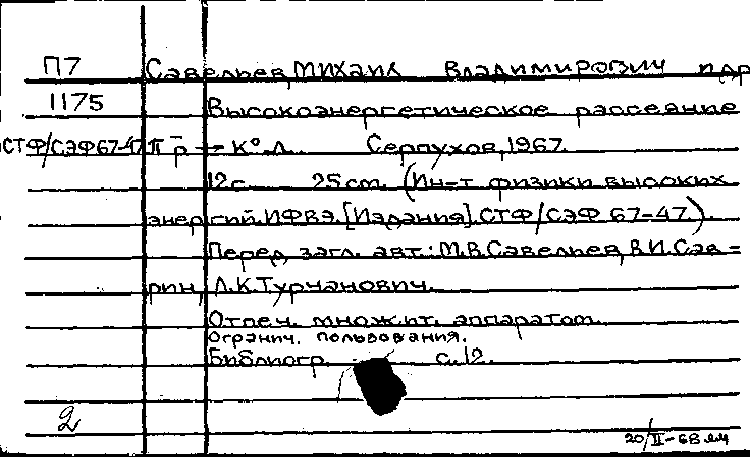 П7 Савельев, Михаил Владимирович и др
1175 Высокоэнергетическое рассеяние
СТФ/СЭФ 67-47 π⁻p → K°Λ. Серпухов, 1967.
12 с. 25 cm. (Ин-т физики высоких
энергий. ИФВЭ. [Издания]. СТФ/СЭФ 67-47.)
Перед загл. авт.: М.В. Савельев, В.И. Сав=
рин, Л.К. Турчанович.
Отпеч. множит. аппаратом.
Огранич. пользования.
Библиогр. с. 12.
2
20/II-68